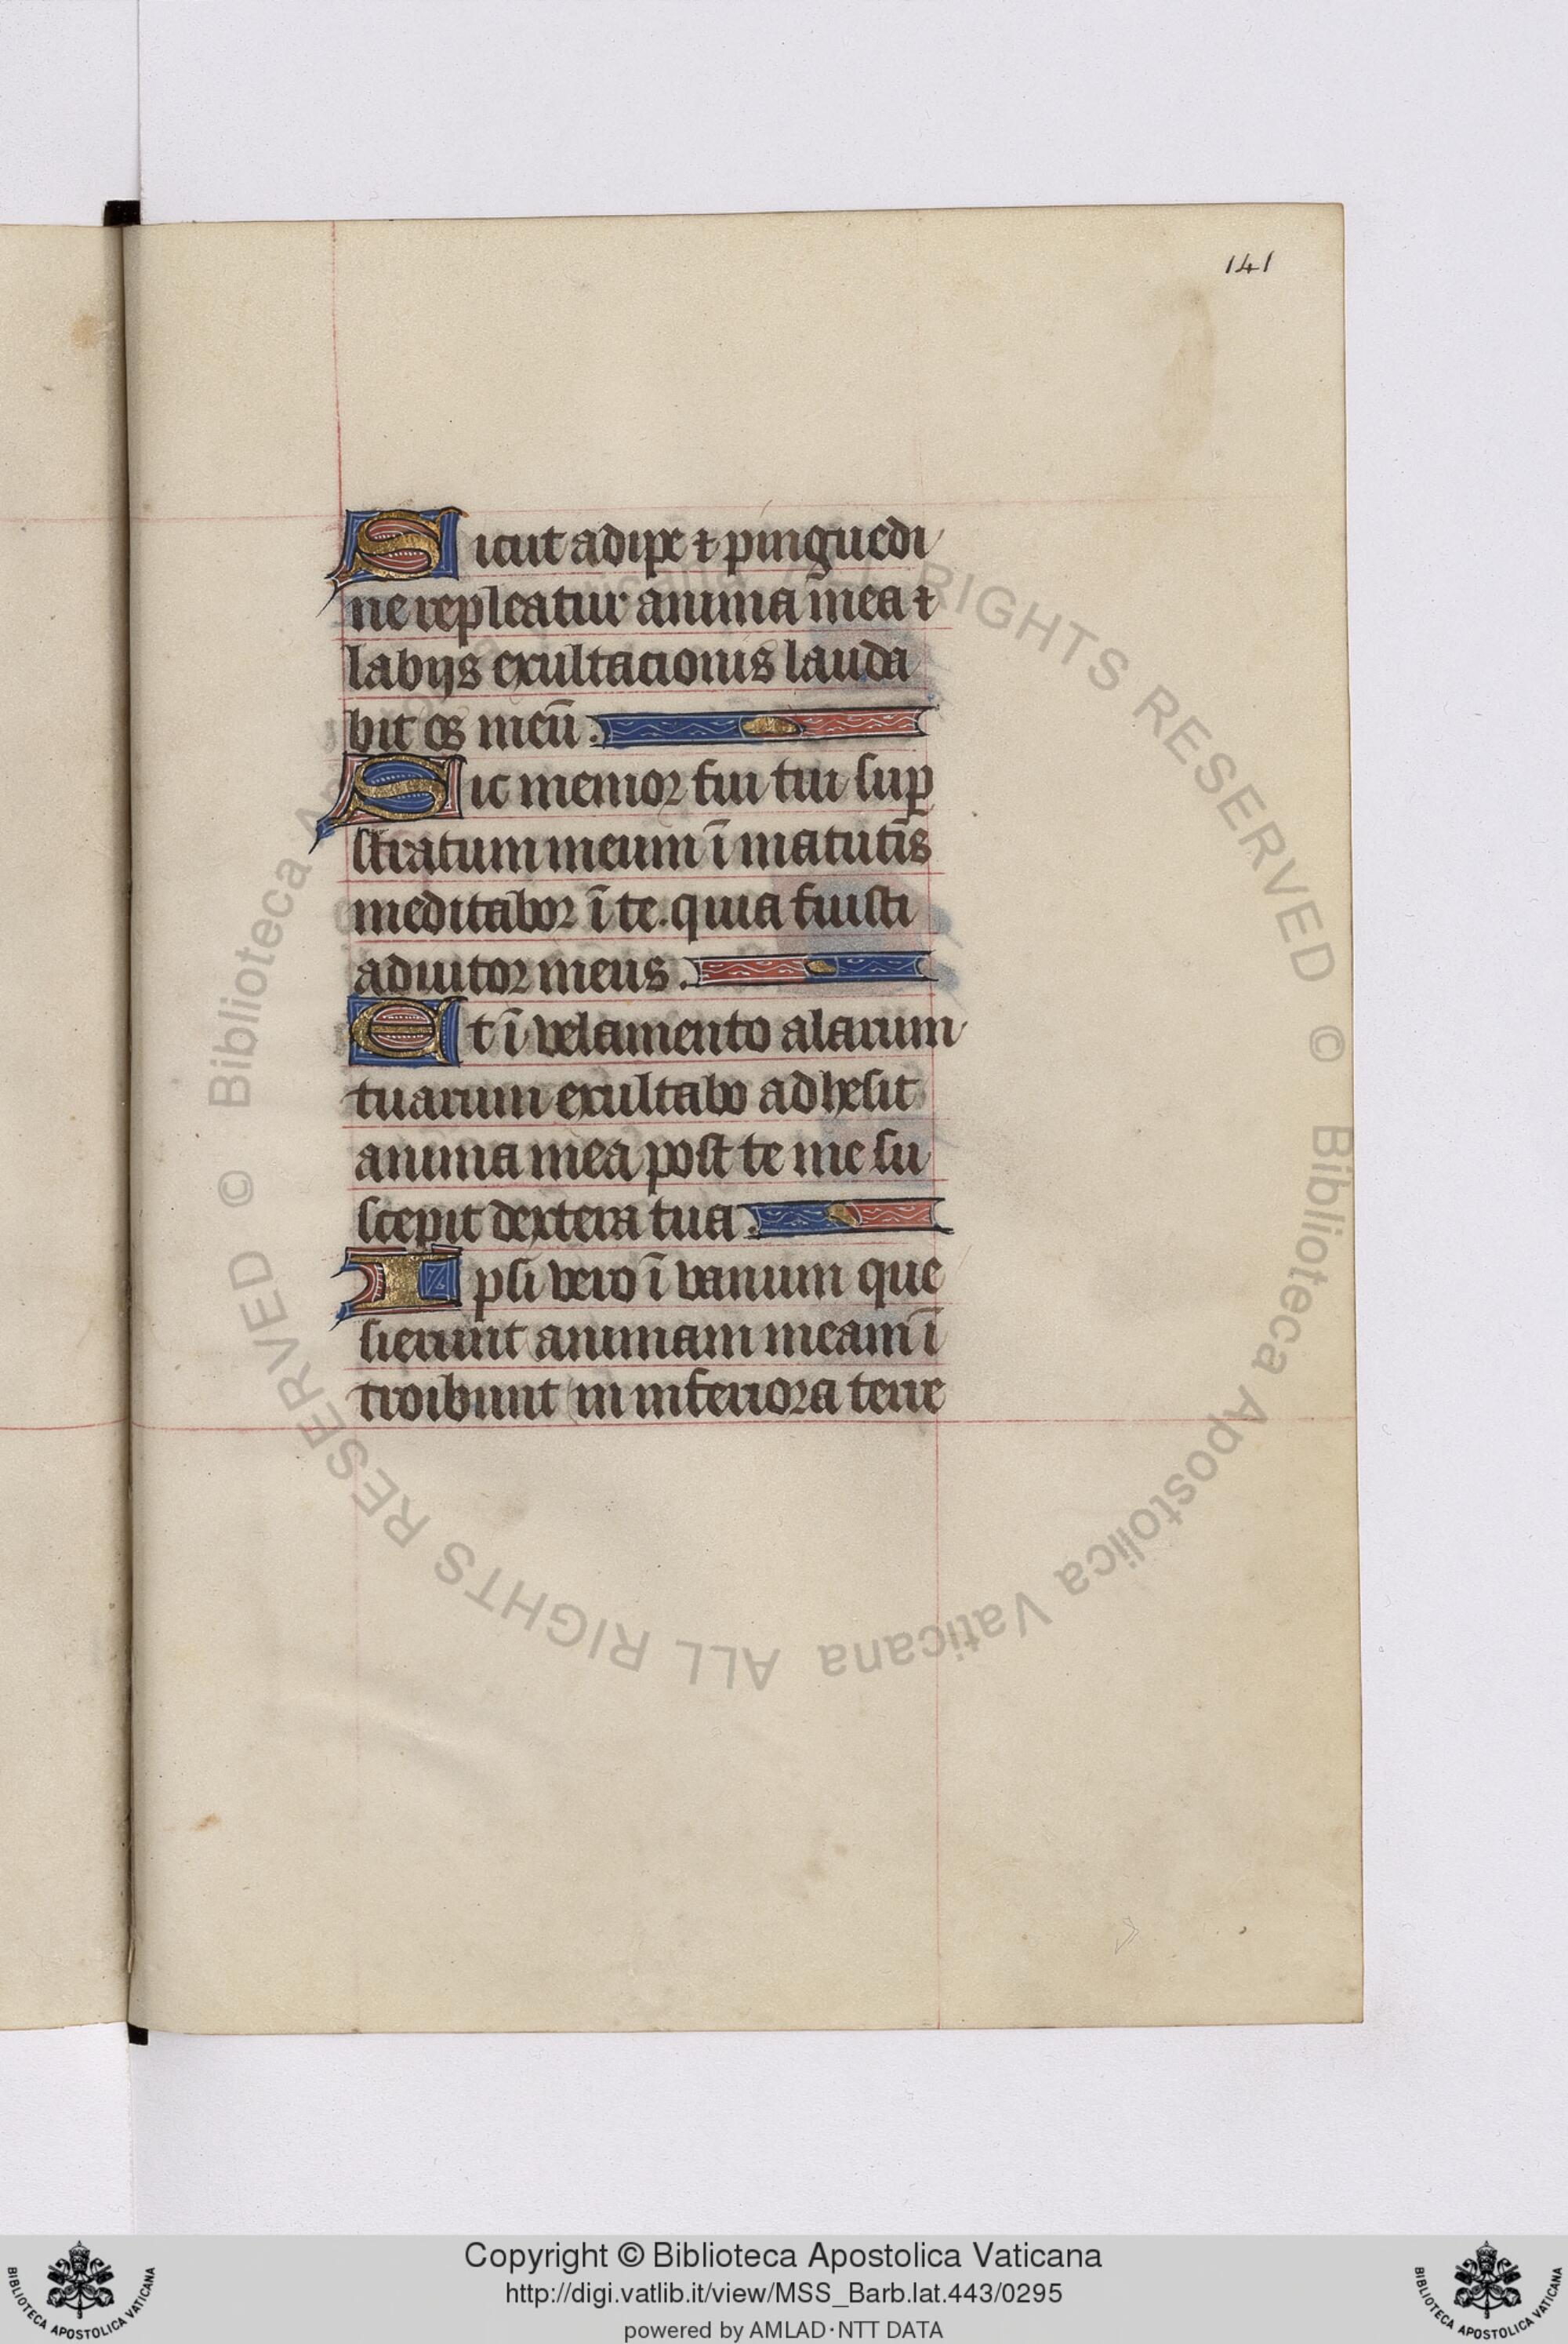 141
Sicut adipe ⁊ pinguedi
ne repleatur anima mea ⁊
labijs exultacionis lauda
bit os meū.
Sic memor fui tui sup̱
stratum meum ī matutīs
meditabor ī te. quia fuisti
adiutor meus.
Et ī velamento alarum
tuarum exultabo adhesit
anima mea post te me su
scepit dextera tua.
Ipsi vero ī vanum que
sierunt animam meam ī
troibunt in inferiora terre
© Biblioteca Apostolica Vaticana ALL RIGHTS RESERVED
© Biblioteca Apostolica Vaticana ALL RIGHTS RESERVED
Copyright © Biblioteca Apostolica Vaticana
http://digi.vatlib.it/view/MSS_Barb.lat.443/0295
powered by AMLAD·NTT DATA
BIBLIOTECA APOSTOLICA VATICANA
BIBLIOTECA APOSTOLICA VATICANA